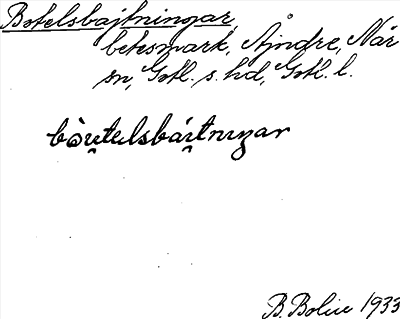 Botelsbajtningar,
betesmark, Ajndre, När
sn, Gotl. s. hd, Gotl. l.
bòu̯telsbái̯tnıŋar
B. Bolin 1933